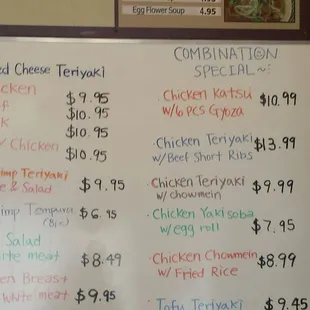 Egg Flower Soup 4.95
COMBINATION
SPECIAL~
Cheese Teriyaki
$9.95
$10.95
$10.95
Chicken $10.95
Teriyaki
& Salad $9.95
Tempura $6.95
Salad
meat $8.49
Breast
White meat $9.95
· Chicken Katsu
w/6 PCS Gyoza $10.99
· Chicken Teriyaki
w/Beef Short Ribs $13.99
· Chicken Teriyaki
w/chowmein $9.99
· Chicken Yakisoba
w/egg roll $7.95
· Chicken Chowmein
w/ Fried Rice $8.99
· Tofu Teriyaki $9.45